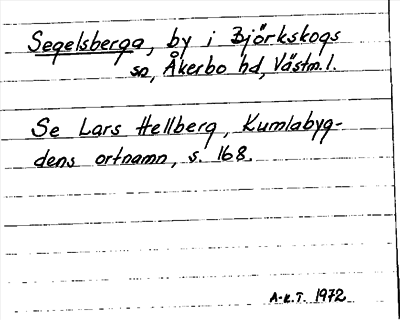 Segelsberga, by i Björkskogs
sn, Åkerbo hd, Västm. l.
Se Lars Hellberg, Kumlabyg-
dens ortnamn, s. 168.
A-K.T. 1972